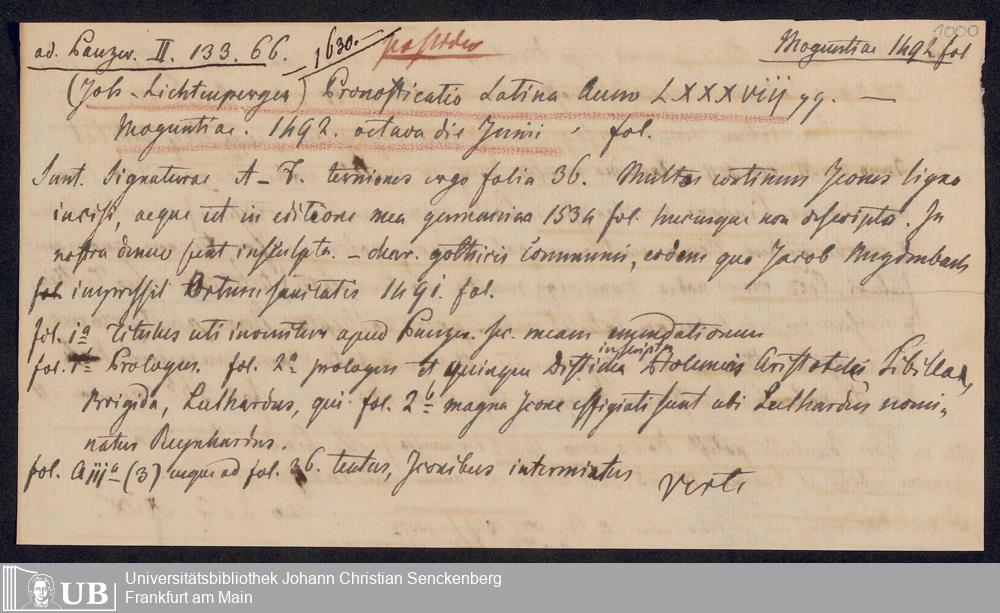 1000
ad. Panzer. II. 133. 66. 1630. possideo Moguntiae 1492 fol
(Joh. Lichtenperger) Pronosticatio Latina Anno LXXXVIII gg. —
Moguntiae. 1492. octava die Junii fol.
Sunt. Signaturae A-F. terniones ergo folia 36. Multas continens Icones ligno
incisis, aeque ut in editione mea germanica 1534 fol. hucusque non descripta. In
nostra denuo sunt insculpta. - char. gothicis communis, eodem quo Jacob
fol impressit Ortum sanitatis 1491. fol.
fol. 1a Titulus uti invenitur apud Panzer. sec. meam emendationem
fol. 1b Prologus. fol. 2a prologus et quinque Disticha inscripta Ptolemeus Aristoteles Sibilla,
Brigida, Lulhardus, qui fol. 2b magna Icone effigiati sunt ubi Lulhardus nomi-
natus Reynhardus.
fol. A iija (3) usque ad fol. 36. textus, Iconibus intermixtus
verte
UB Universitätsbibliothek Johann Christian Senckenberg
Frankfurt am Main